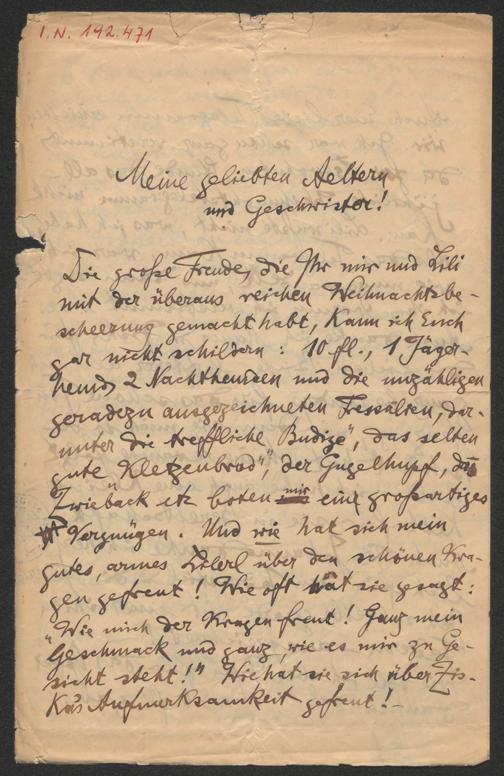 I.N. 192.471
Meine geliebten Aeltern
und Geschwister!
Die große Freude, die Ihr mir und Lili
mit der überaus reichen Weihnachtsbe-
scheerung gemacht habt, kann ich Euch
gar nicht schildern: 10 fl., 1 Jäger-
hemd, 2 Nachthemden und die unzähligen
geradezu ausgezeichneten Fressalien, dar-
unter die treffliche „Budize“, das selten
gute „Kletzenbrod“, der Gugelhupf, die
Zwieback etz boten mir ein großartiges
Vergnügen. Und wie hat sich mein
gutes, armes Lilerl über den schönen Kra-
gen gefreut! Wie oft hat sie gesagt:
„Wie mich der Kragen freut! Ganz mein
Geschmack und ganz, wie es mir zu Ge-
sicht steht!“ Wie hat sie sich über Zis-
kas Aufmerksamkeit gefreut!–